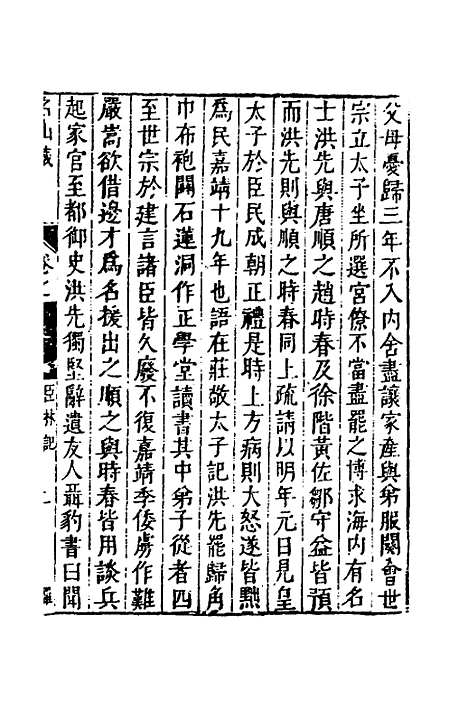 父母憂歸三年不入內舍盡讓家產與弟服闋會世
宗立太子坐所選宮僚不當盡罷之博求海內有名
士洪先與唐順之趙時春及徐階黃佐鄒守益皆預
而洪先則與順之時春同上疏請以明年元日見皇
太子於臣民成朝正禮是時上方病則大怒遂皆黜
爲民嘉靖十九年也語在莊敬太子記洪先罷歸角
巾布袍闢石蓮洞作正學堂讀書其中弟子從者四
至世宗於建言諸臣皆久廢不復嘉靖季倭虜作難
嚴嵩欲借邊才爲名援出之順之與時春皆用談兵
起家官至都御史洪先獨堅辭遺友人聶豹書曰聞
名山藏 卷之 臣林記